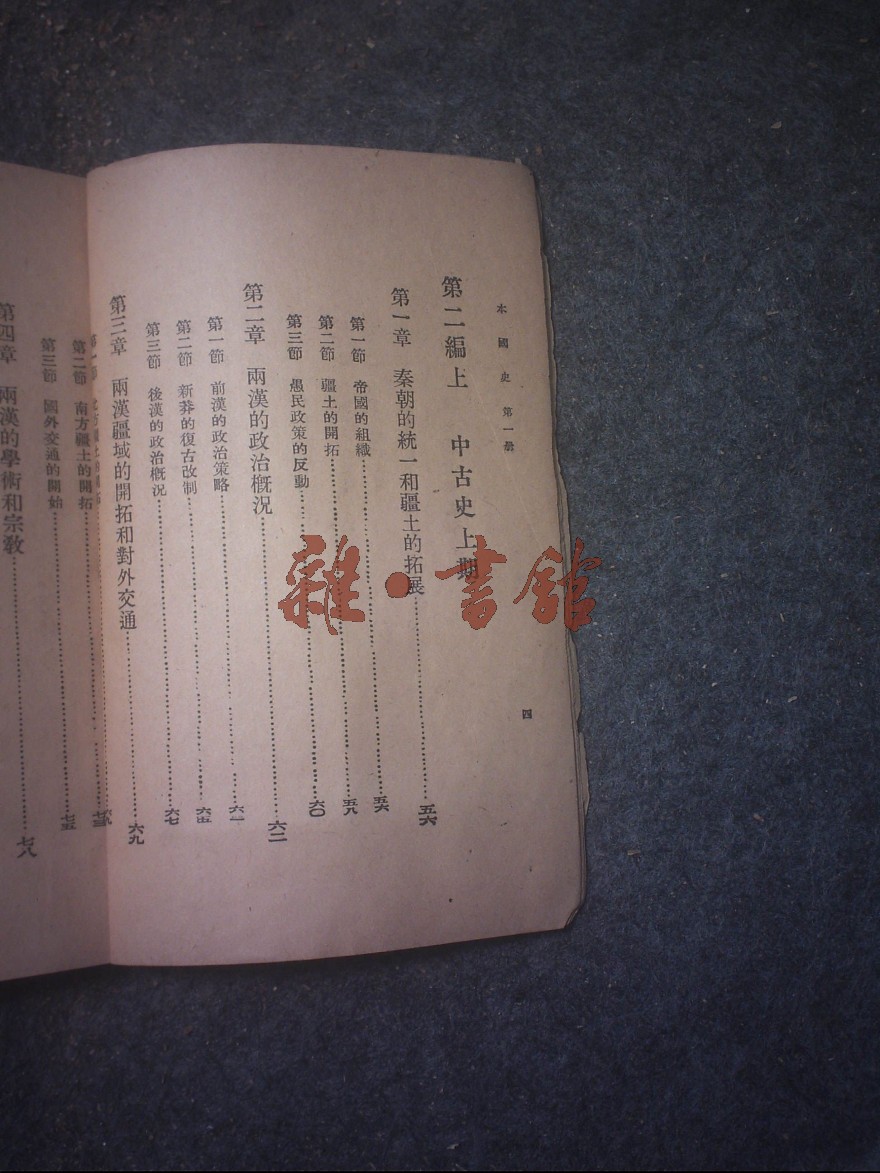 本國史 第一册
四
第二編上 中古史上期
第一章 秦朝的統一和疆土的拓展 五六
第一節 帝國的組織 五六
第二節 疆土的開拓 五九
第三節 愚民政策的反動 六〇
第二章 兩漢的政治概況 六二
第一節 前漢的政治策略
第二節 新莽的復古改制 六五
第三節 後漢的政治概況 六七
第三章 兩漢疆域的開拓和對外交通 六九
第一節 北方疆土的開拓
第二節 南方疆土的開拓
第三節 國外交通的開始 七五
第四章 兩漢的學術和宗教 七八
雜·書館